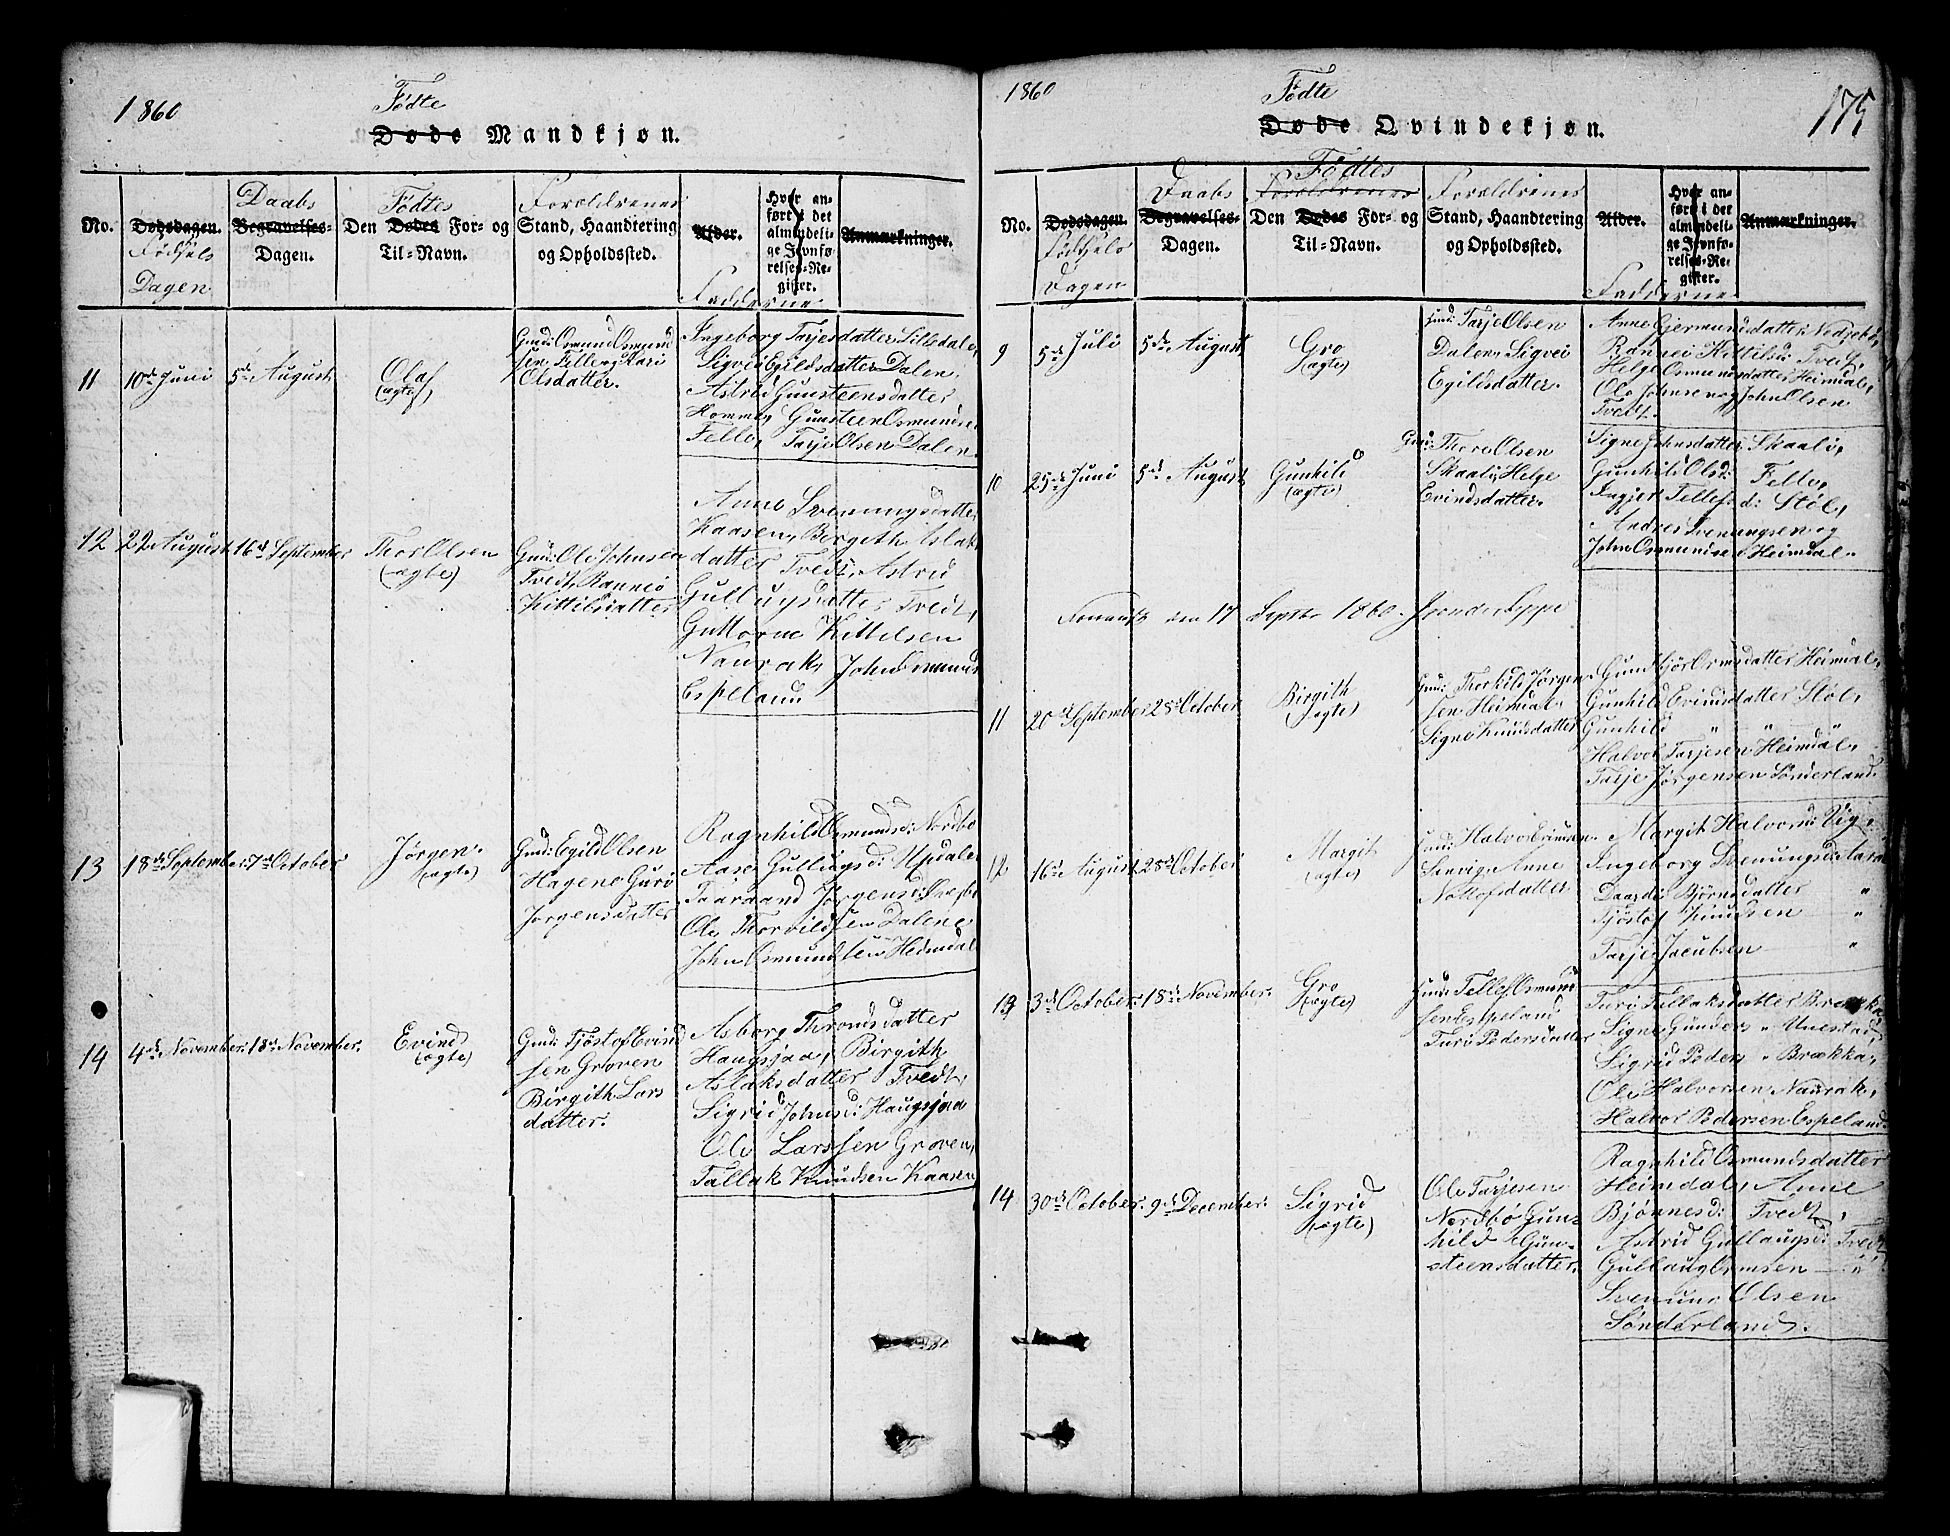 1860
Fødte
Døde Mandkjøn.
No.
Dødsdagen.
Fødsels
Dagen
Daabs
Begravelses-
Dagen.
Fødtes
Den Dødes For- og
Til-Navn.
Forældrenes
Stand, Haandtering
og Opholdssted.
Alder.
Fadderne
Hvor an-
ført i det
almindeli-
ge Jevnfø-
relses-Re-
gister.
Anmærkninger.
11
10de Juni
5te August
Olaf
(ægte)
Gmd: Osmund Osmund
sen Felle og Kari
Olsdatter.
Ingeborg Tarjesdatter Lillsdale,
Sigvei Egildsdatter Dalen,
Astrid Gunsteensdatter
Homme, Gunsteen Osmundsen
Felle, Tarje Olsen Dalen.
12
22 August
16de September
Thor Olsen
(ægte)
Gmd: Ole Johnsen
Tvedt, Rannei
Kittilsdatter
Anne Sveningsdatter
Kaasen, Birgith Aslaks
datter Tvedt, Astrid
Gullugsdatter Tvedt,
Guttorm Kittelsen
Naurak, John Osmunds
Espeland
13
18de September
7de October
Jørgen
(ægte)
Gmd: Egild Olsen
Hagene Guro
Jørgensdatter
Ragnhild Osmundsd: Nordbø
Aase Gullugsd: Updale,
Taaraand Jørgensd:
Ole Thorvildsen Dalene
John Osmundsen Heimdal
14
4de November
18de November.
Evind
(ægte)
Gmd: Tjøstof Evind
sen Groven
Birgith Lars
datter.
Asborg Throndsdatter
Haugsjaa, Birgith
Aslaksdatter Tvedt,
Sigrid Johnsd: Haugsjaa
Ole Larssen Groven,
Tallak Knudsen Kaasen
1860
Fødte
Døde Qvindekjøn.
175
No.
Dødsdagen.
Fødsels
Dagen
Daabs
Begravelses-
Dagen.
Fødtes
Forældrenes
Den Dødes For- og
Til-Navn.
Forældrenes
Stand, Haandtering
og Opholdssted.
Alder.
Fadderne
Hvor an-
ført i det
almindeli-
ge Jevnfø-
relses-Re-
gister.
Anmærkninger.
9
5te Juli
5te August
Gro
(ægte)
Gmd: Tarje Olsen
Dalen, Sigvei
Egildsdatter.
Anne Gjermundsdatter Nedjebø,
Rannei Kittilsd: Tvedt,
Helge Osmundsdatter Heimdal,
Ole Johnsen og John Olsen
Tvedt.
10
25de Juni
5te August
Gunhild
(ægte)
Gmd: Thore Olsen
Skaali, Helge
Evindsdatter.
Signe Johnsdatter Skaali,
Gunhild Olsd: Felle,
Ingjer Tellefsd: Støl,
Andres Sveningsen og
John Osmundsen Heimdal.
den 17 Septbr 1860.
11
20de September
28de October
Birgith
(ægte)
Gmd: Thorkild Jørgen
sen Heimdal,
Signe Knudsdatter
Gundbjør Ormsdatter Heimdal,
Gunhild Evindsdatter Støl,
Gunhild " "
Halvor Tarjesen Heimdal,
Tarje Jørgensen Sønderland
12
16de August
28de October
Margit
(ægte)
Gmd: Halvor Evindsen
Anne
datter
Margit Halvorsd: Vig
Ingeborg Sveningsd:
Bjørnsdatter "
Tjøstof Knudsen "
Tarje Jacobsen "
13
3de October
18de November.
Gro
(ægte)
Gmd: Tellef Osmund
sen Espeland
Turi Pedersdatter
Turi Tallaksdatter Brækka
Signe Gunders "
Sigrid Peders " Brækka,
Ole Halvorsen Naurak,
Halvor Pedersen Espeland.
14
30de October.
9de December.
Sigrid
(ægte)
Ole Tarjesen
Nordbø Gun-
hild Gun-
steensdatter.
Ragnhild Osmundsdatter
Heimdal, Anne
Bjønnesd: Tvedt,
Astrid Gullaugsd: Tvedt
Gullaug Ormsen "
Svenung Olsen
Sønderland.